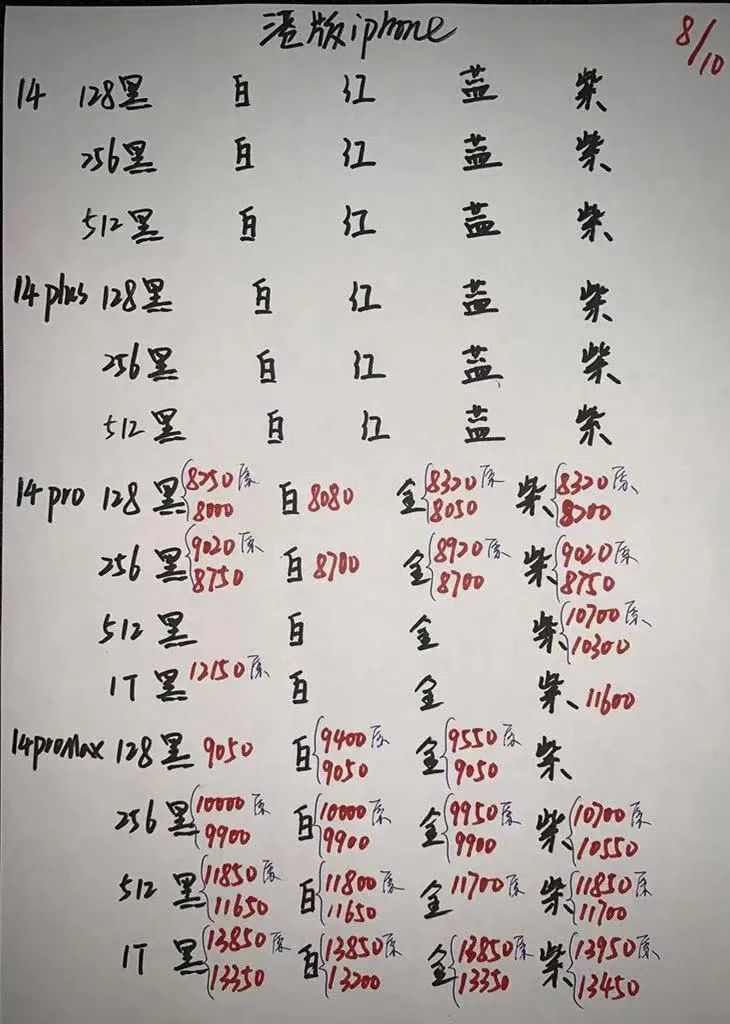 港版iphone 8/10
14 128黑 白 红 蓝 紫
256黑 白 红 蓝 紫
512黑 白 红 蓝 紫
14plus 128黑 白 红 蓝 紫
256黑 白 红 蓝 紫
512黑 白 红 蓝 紫
14pro 128黑 8250原 8000 白8080 金 8320原 8050 紫 8320原 8200
256黑 9020原 8750 白8700 金 8920原 8700 紫 9020原 8750
512黑 白 金 紫 10700原 10300
1T黑 12150原 白 金 紫 11600
14proMax 128黑 9050 白 9400原 9050 金 9550原 9050 紫
256黑 10000原 9900 白 10000原 9900 金 9950原 9900 紫 10700原 10550
512黑 11850原 11650 白 11800原 11650 金 11700原 紫 11850原 11700
1T黑 13850原 13350 白 13850原 13200 金 13850原 13350 紫 13950原 13450